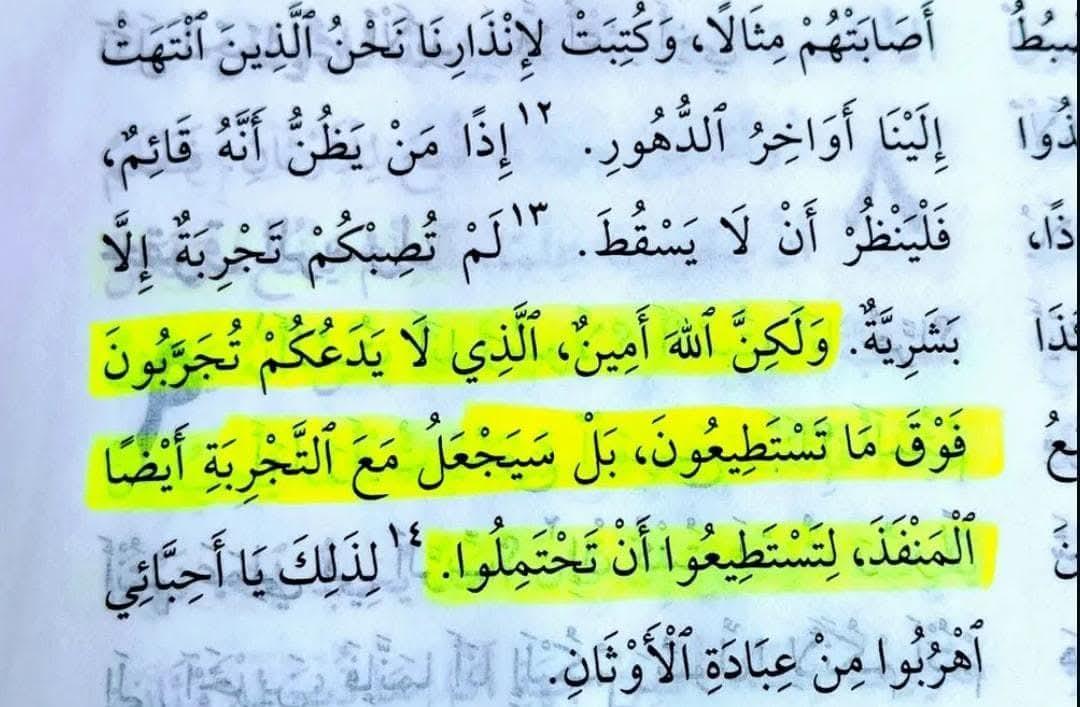 أَصَابَتْهُمْ مِثَالًا، وَكُتِبَتْ لِإِنْذَارِنَا نَحْنُ ٱلَّذِينَ ٱنْتَهَتْ
إِلَيْنَا أَوَاخِرُ ٱلدُّهُورِ. ١٢ إِذًا مَنْ يَظُنُّ أَنَّهُ قَائِمٌ،
فَلْيَنْظُرْ أَنْ لَا يَسْقُطَ. ١٣ لَمْ تُصِبْكُمْ تَجْرِبَةٌ إِلَّا
بَشَرِيَّةٌ. وَلَكِنَّ ٱللهَ أَمِينٌ، ٱلَّذِي لَا يَدَعُكُمْ تُجَرَّبُونَ
فَوْقَ مَا تَسْتَطِيعُونَ، بَلْ سَيَجْعَلُ مَعَ ٱلتَّجْرِبَةِ أَيْضًا
ٱلْمَنْفَذَ، لِتَسْتَطِيعُوا أَنْ تَحْتَمِلُوا. ١٤ لِذَلِكَ يَا أَحِبَّائِي
ٱهْرُبُوا مِنْ عِبَادَةِ ٱلْأَوْثَانِ.